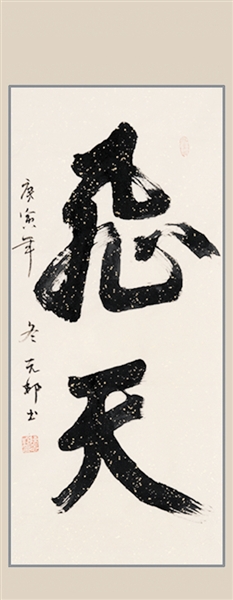 飛天
庚寅年
冬元邨书